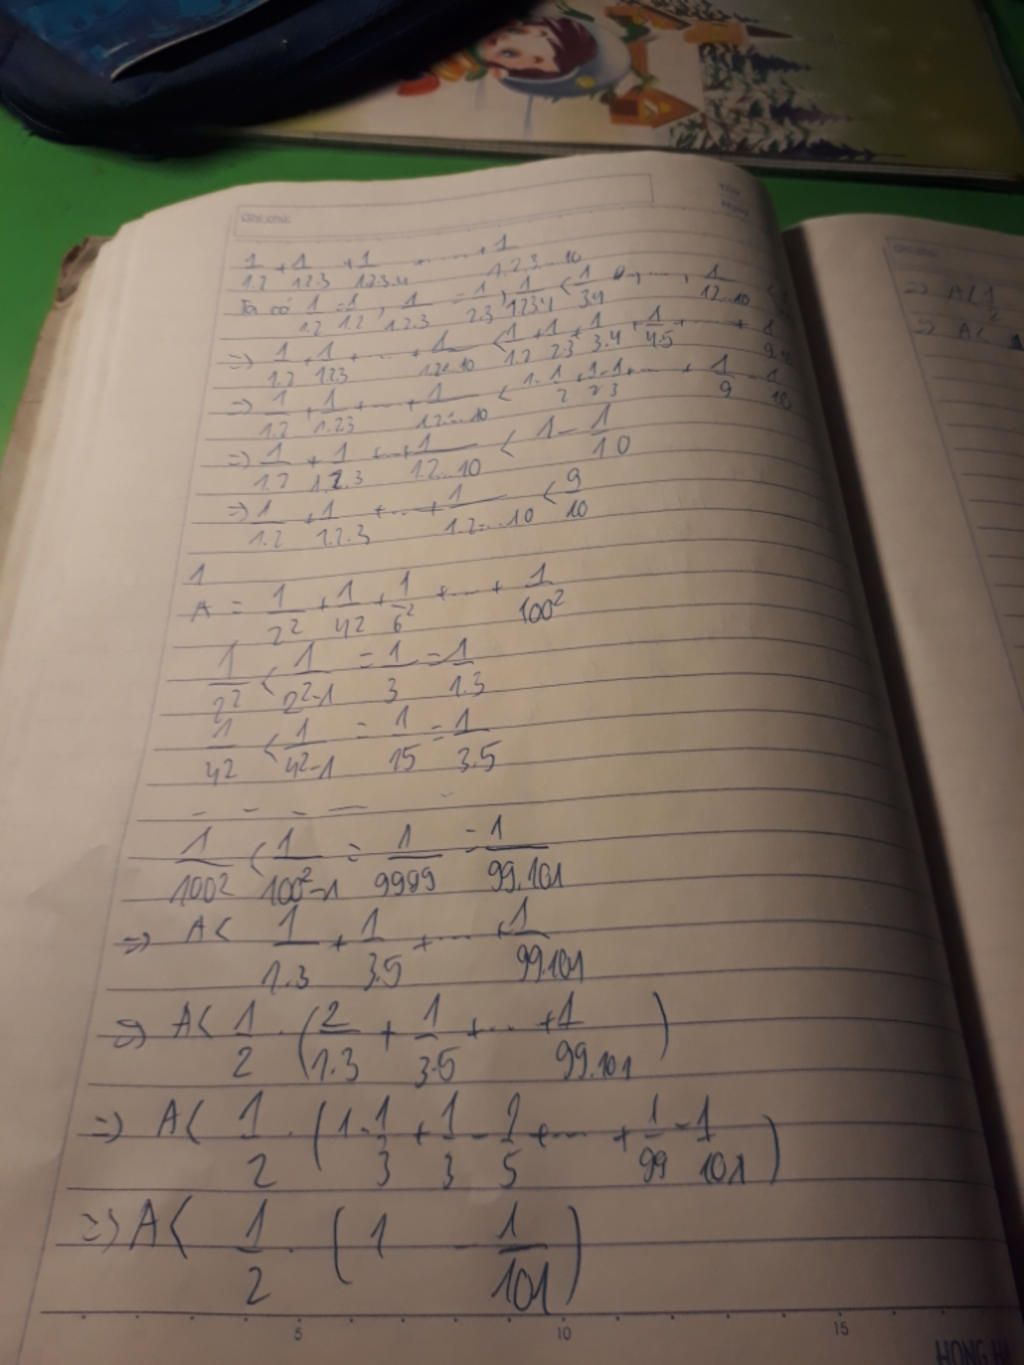 Ghi chú:
Thứ
Ngày
1/1.2 + 1/1.2.3 + 1/1.2.3.4 + .... + 1/1.2.3...10
Ta có 1/1.2 = 1/1.2, 1/1.2.3 = 1/2.3, 1/1234 < 1/34 , ... , 1/12..10
=> 1/1.2 + 1/1.2.3 + ... + 1/1.2...10 < 1/1.2 + 1/2.3 + 1/3.4 + 1/4.5 + ... +
=> 1/1.2 + 1/1.2.3 + ... + 1/1.2....10 < 1 - 1/2 + 1/2 - 1/3 + ... + 1/9 - 1/10
=> 1/1.2 + 1/1.2.3 + ... + 1/1.2...10 < 1 - 1/10
=> 1/1.2 + 1/1.2.3 + .... + 1/1.2....10 < 9/10
1
A = 1/2² + 1/4² + 1/6² + ... + 1/100²
1/2² < 1/2²-1 = 1/3 = 1/1.3
1/4² < 1/4²-1 = 1/15 = 1/3.5
- - - - -
1/100² < 1/100²-1 = 1/9999 = 1/99.101
=> A < 1/1.3 + 1/3.5 + .... + 1/99.101
=> A < 1/2 . (2/1.3 + 1/3.5 + ... + 1/99.101)
=> A < 1/2 . (1 - 1/3 + 1/3 - 1/5 + .... + 1/99 - 1/101)
=> A < 1/2 . (1 - 1/101)
5 10 15
HONG H
=> A < 1/2
=> A <